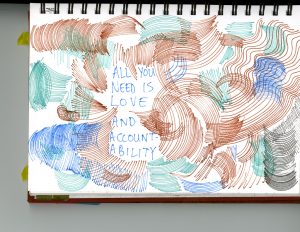 ALL YOU
NEED IS
LOVE
AND
ACCOUNT-
ABILITY